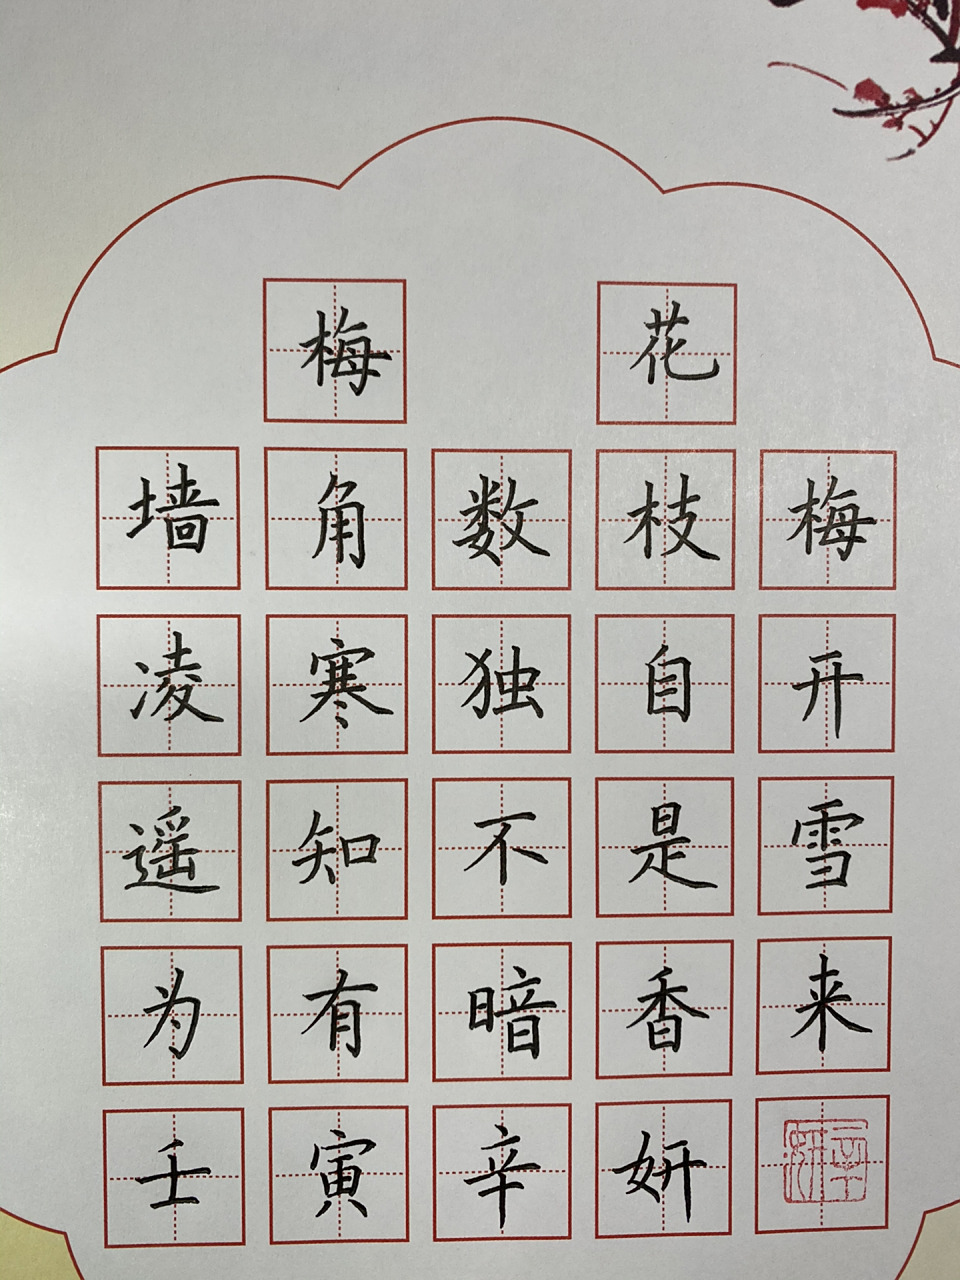 梅花
墙角数枝梅
凌寒独自开
遥知不是雪
为有暗香来
壬寅辛妍
辛妍